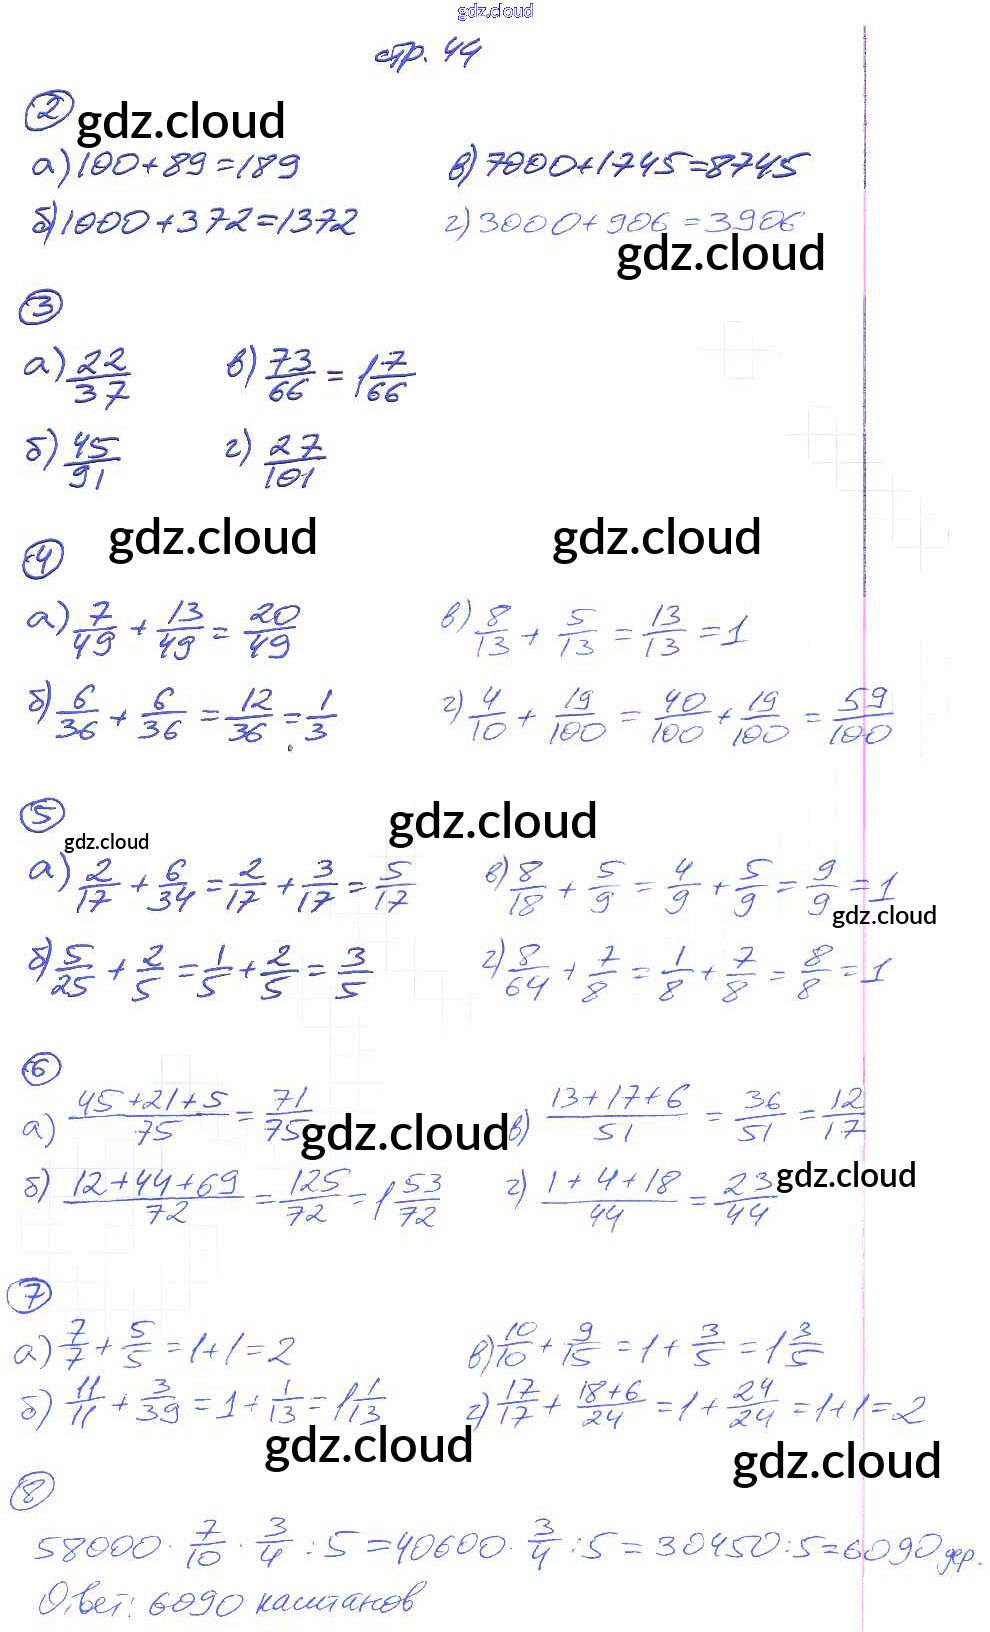 gdz.cloud
стр. 44
2 gdz.cloud
а) 100+89=189 в) 7000+1745=8745
б) 1000+372=1372 г) 3000+906=3906
gdz.cloud
3
а) 22/37 в) 73/66 = 1 7/66
б) 45/91 г) 27/101
gdz.cloud gdz.cloud
4
а) 7/49 + 13/49 = 20/49 в) 8/13 + 5/13 = 13/13 = 1
б) 6/36 + 6/36 = 12/36 = 1/3 г) 4/10 + 19/100 = 40/100 + 19/100 = 59/100
5 gdz.cloud
gdz.cloud
а) 2/17 + 6/34 = 2/17 + 3/17 = 5/17 в) 8/18 + 5/9 = 4/9 + 5/9 = 9/9 = 1
gdz.cloud
б) 5/25 + 2/5 = 1/5 + 2/5 = 3/5 г) 8/64 + 7/8 = 1/8 + 7/8 = 8/8 = 1
6
а) (45+21+5)/75 = 71/75 в) (13+17+6)/51 = 36/51 = 12/17
gdz.cloud
б) (12+44+69)/72 = 125/72 = 1 53/72 г) (1+4+18)/44 = 23/44
gdz.cloud
7
а) 7/7 + 5/5 = 1+1=2 в) 10/10 + 9/15 = 1 + 3/5 = 1 3/5
б) 11/11 + 3/39 = 1 + 1/13 = 1 1/13 г) 17/17 + (18+6)/24 = 1 + 24/24 = 1+1=2
gdz.cloud gdz.cloud
8
58000 · 7/10 · 3/4 : 5 = 40600 · 3/4 : 5 = 30450:5=6090 дер.
Ответ: 6090 каштанов